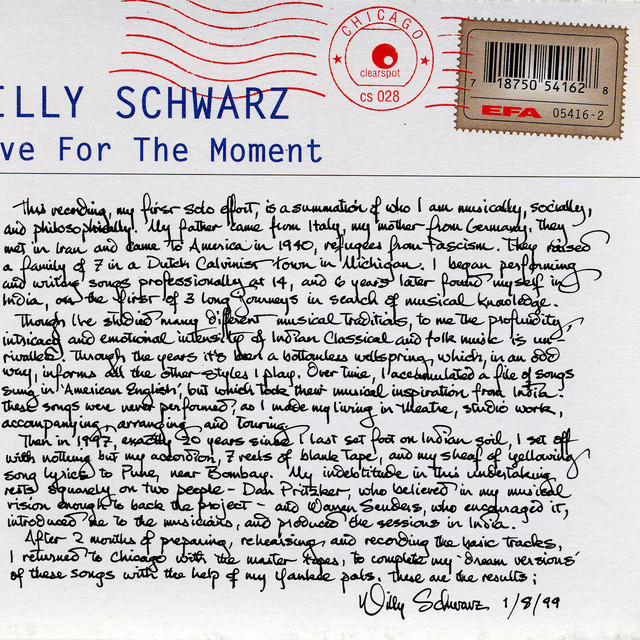 CHICAGO
clearspot
CS 028
7 18750 54162 8
EFA 05416-2
ILLY SCHWARZ
ve For The Moment
This recording, my first solo effort, is a summation of who I am musically, socially,
and philosophically. My father came from Italy, my mother from Germany, they
met in Iran and came to America in 1940, refugees from Fascism. They raised
a family of 7 in a Dutch Calvinist town in Michigan. I began performing
and writing songs professionally at 14, and 6 years later found myself in
India, on the first of 3 long journeys in search of musical knowledge.
Though I've studied many different musical traditions, to me the profundity,
intricacy and emotional intensity of Indian Classical and folk music is un-
rivalled. Through the years it's been a bottomless wellspring, which, in an odd
way, informs all the other styles I play. Over time, I accumulated a file of songs
sung in 'American English', but which took their musical inspiration from India.
These songs were never performed, as I made my living in theatre, studio work,
accompanying, arranging and touring.
Then in 1997, exactly 20 years since I last set foot on Indian soil, I set off
with nothing but my accordion, 7 reels of blank tape, and my sheaf of yellowing
song lyrics to Pune, near Bombay. My indebtitude in this undertaking
rests squarely on two people - Dan Pritzker, who believed in my musical
vision enough to back the project - and Warren Senders, who encouraged it,
introduced me to the musicians, and produced the sessions in India.
After 2 months of preparing, rehearsing, and recording the basic tracks,
I returned to Chicago with the master tapes, to complete my 'dream versions'
of these songs with the help of my Yankee pals. These are the results;
Willy Schwarz 1/8/99